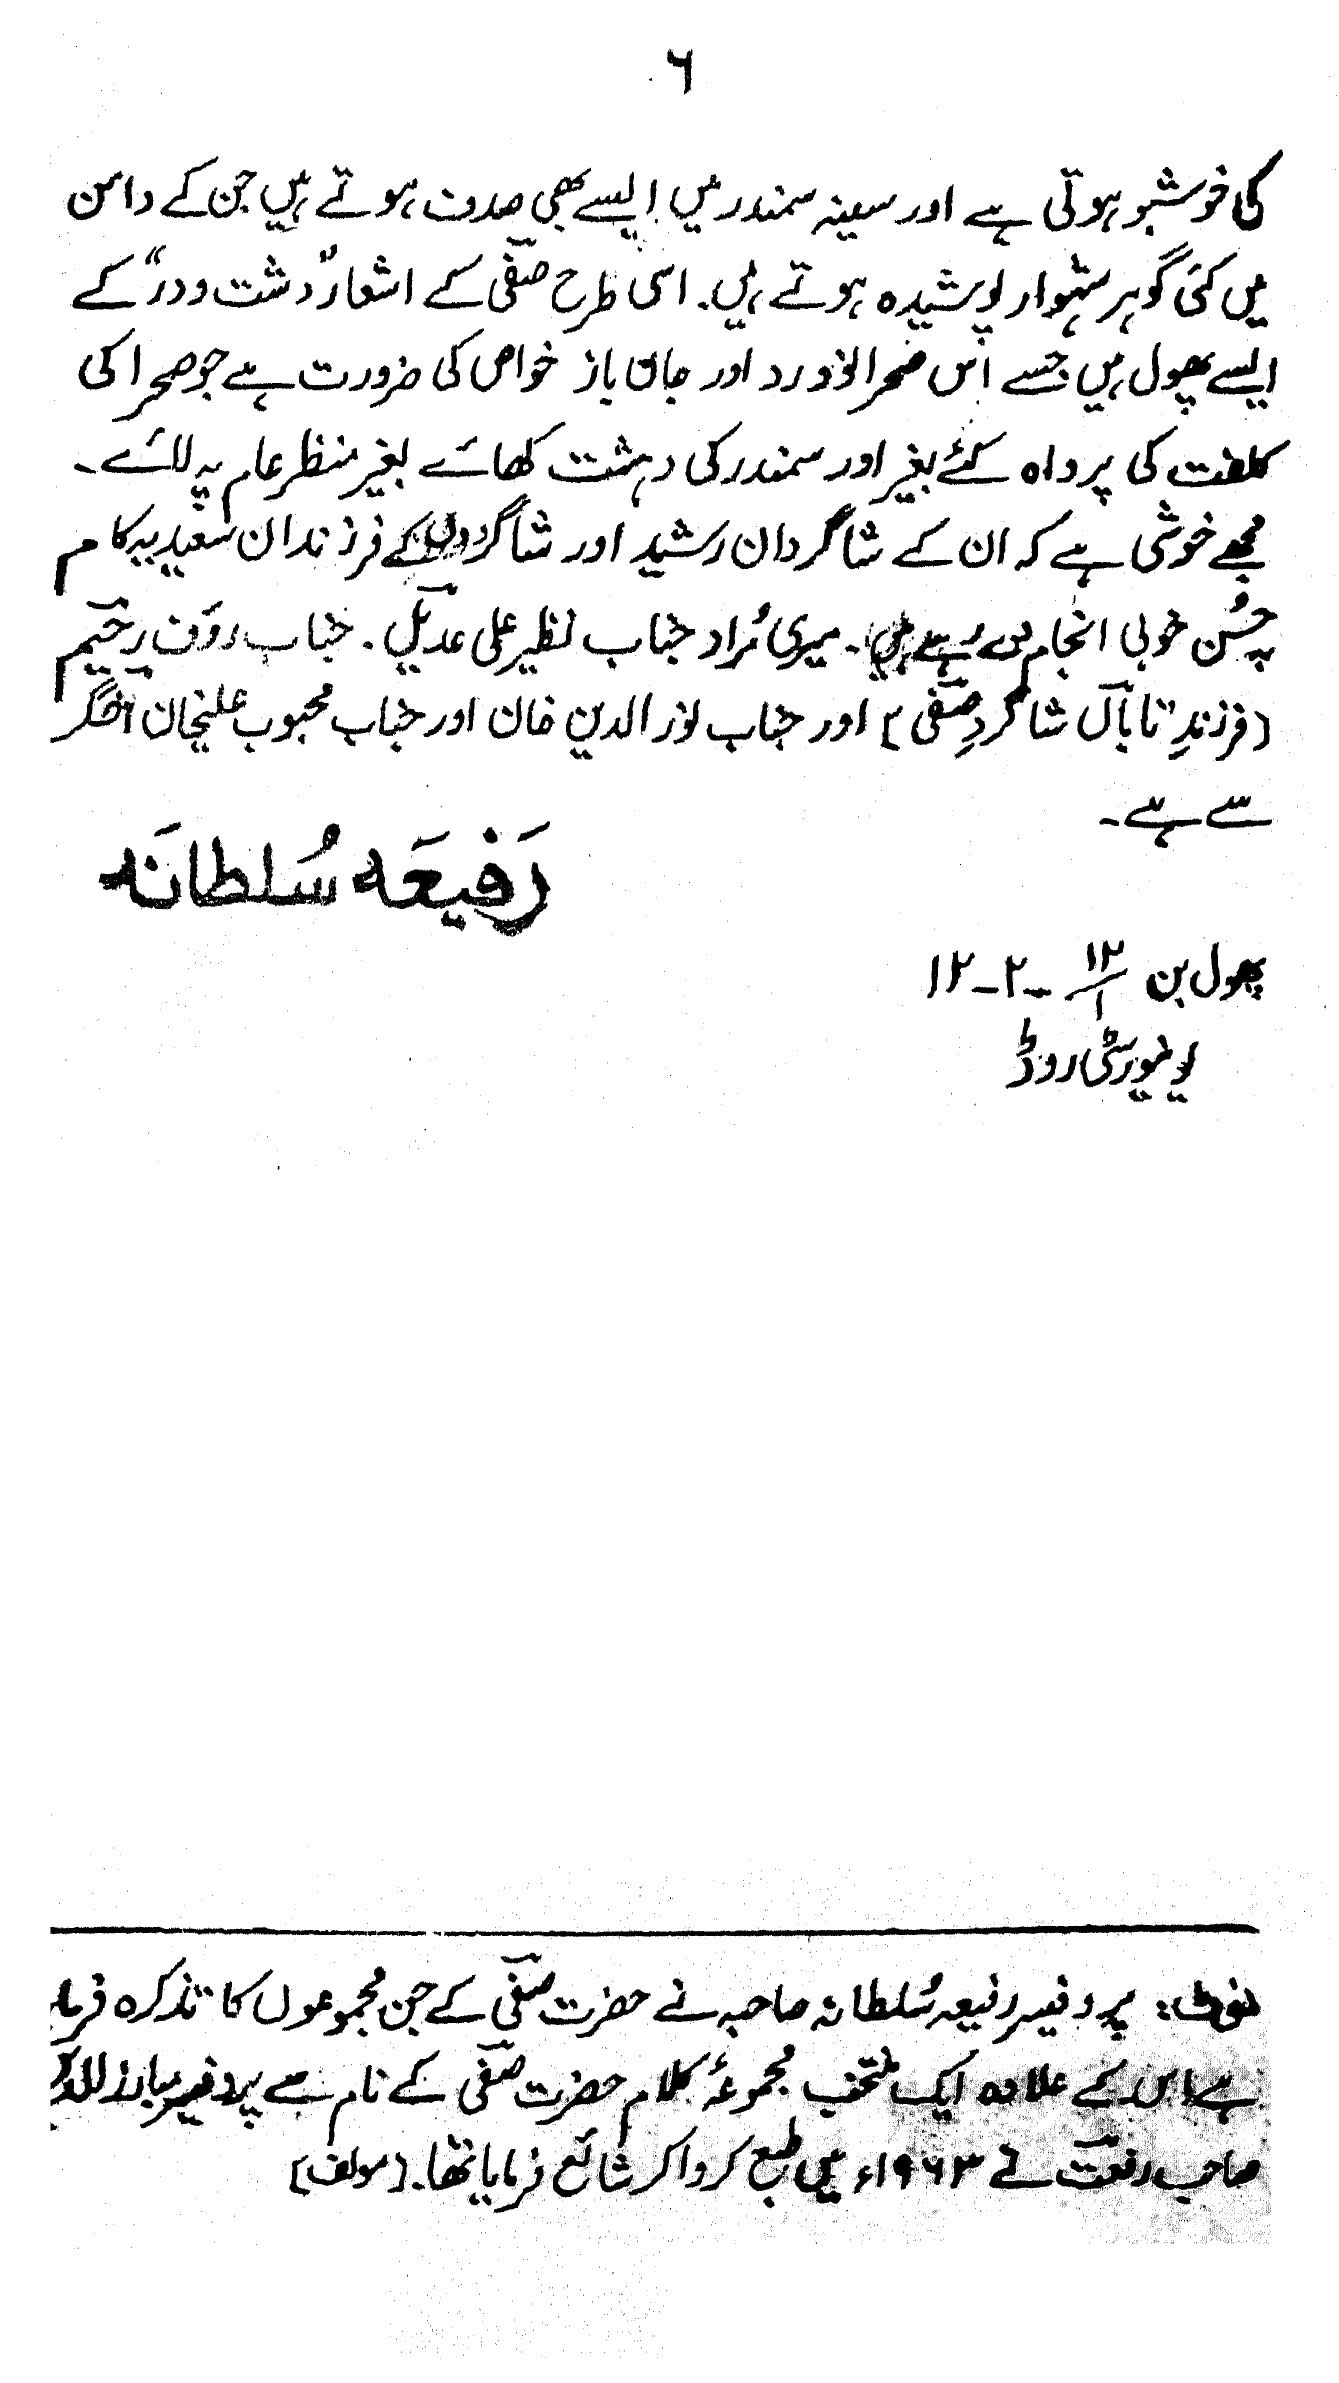 ۶
کی خوشبو ہوتی ہے اور سینہ سمندر میں ایسے بھی صدف ہوتے ہیں جن کے دامن
میں کئی گوہر شہوار پوشیدہ ہوتے ہیں۔ اسی طرح صفی کے اشعار "دشت و در" کے
ایسے پھول ہیں جسے اس صحرا نورد اور جان باز خواص کی ضرورت ہے جو صحرا کی
کلفت کی پرواہ کئے بغیر اور سمندر کی دہشت کھائے بغیر منظر عام پہ لائے۔
مجھے خوشی ہے کہ ان کے شاگردان رشید اور شاگردوں کے فرزندان سعید یہ کام
بہ حُسن خوبی انجام دے رہے ہیں۔ میری مُراد جناب نظیر علی عدیل۔ جناب رؤف رحیم
(فرزندِ تاباں شاگردِ صفی) اور جناب نورالدین خان اور جناب محبوب علیخان اخگر
سے ہے۔
رَفیعَہ سُلطانَہ
پھول بن ۱۲/۱ -۲-۱۲
یونیورسٹی روڈ
نوٹ: پروفیسر رفیعہ سُلطانہ صاحبہ نے حضرت صفی کے جن مجموعوں کا تذکرہ فرمایا
ہے اس کے علاوہ ایک منتخب مجموعۂ کلام حضرت صفی کے نام سے پروفیسر مبارزالدین
صاحب رفعت نے ۱۹۶۳ء میں طبع کرواکر شائع فرمایا تھا۔ (مولف)